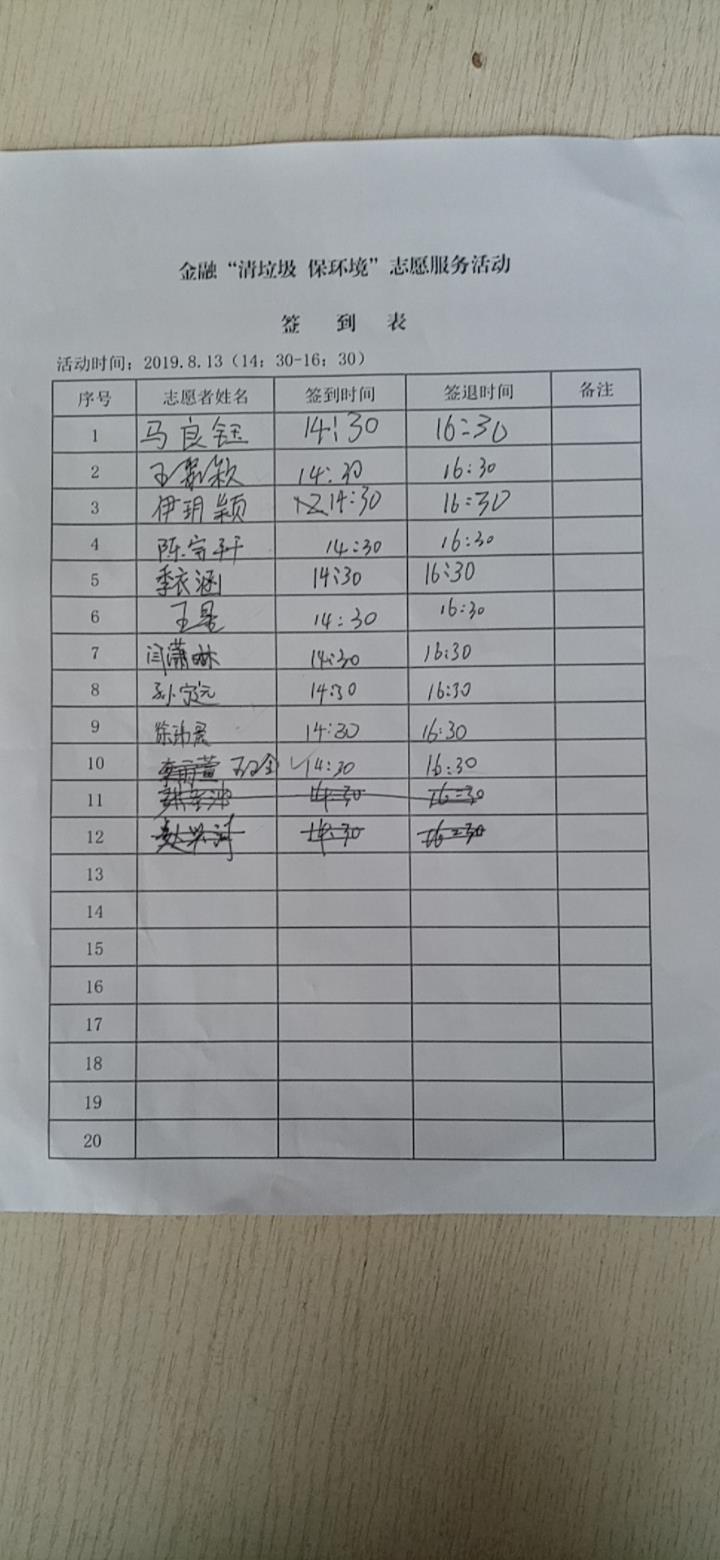 金融“清垃圾 保环境”志愿服务活动
签 到 表
活动时间：2019.8.13（14：30-16：30）
序号 志愿者姓名 签到时间 签退时间 备注
1 马良钰 14:30 16:30
2 王 14:30 16:30
3 伊玥颖 14:30 16:30
4 陈宇轩 14:30 16:30
5 季衣涵 14:30 16:30
6 王 14:30 16:30
7 闫潇琳 14:30 16:30
8 孙 14:30 16:30
9 14:30 16:30
10 14:30 16:30
11 14:30 16:30
12 14:30 16:30
13
14
15
16
17
18
19
20